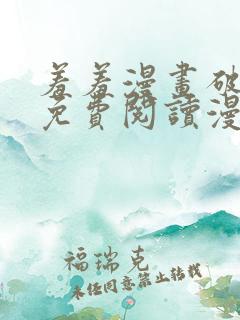 羞羞漫畫破
免費閱讀漫
福瑞克
未经同意禁止转载